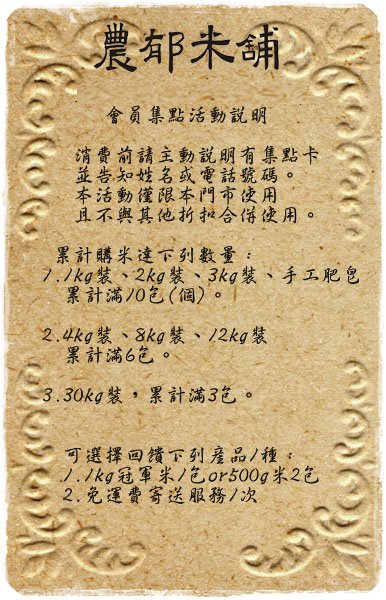 農郁米舖
會員集點活動說明
消費前請主動說明有集點卡
並告知姓名或電話號碼。
本活動僅限本門市使用
且不與其他折扣合併使用。
累計購米達下列數量：
1.1kg裝、2kg裝、3kg裝、手工肥皂
累計滿10包(個)。
2.4kg裝、8kg裝、12kg裝
累計滿6包。
3.30kg裝，累計滿3包。
可選擇回饋下列産品1種：
1.1kg冠軍米1包or500g米2包
2.免運費寄送服務1次